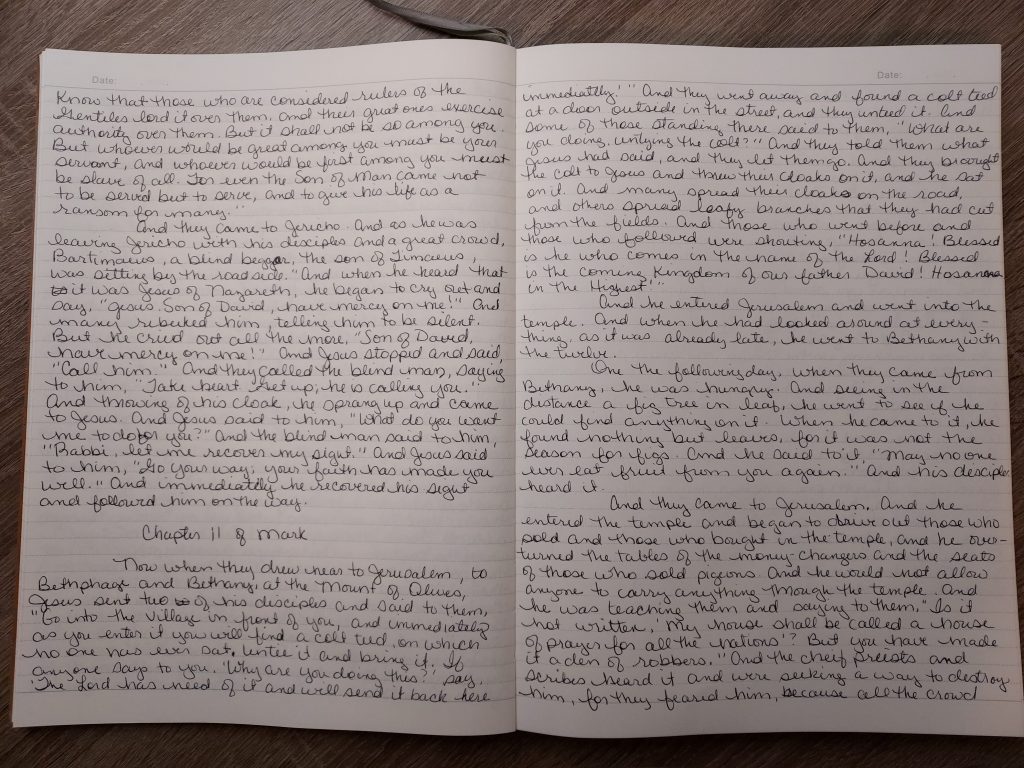 Date:
Know that those who are considered rulers of the
Gentiles lord it over them. And their great ones exercise
authority over them. But it shall not be so among you.
But whoever would be great among you must be your
servant, and whoever would be first among you must
be slave of all. For even the Son of Man came not
to be served but to serve, and to give his life as a
ransom for many."
And they came to Jericho. And as he was
leaving Jericho with his disciples and a great crowd,
Bartimaeus, a blind beggar, the son of Timaeus,
was sitting by the roadside. "And when he heard that
it was Jesus of Nazareth, he began to cry out and
say, "Jesus, Son of David, have mercy on me!" And
many rebuked him, telling him to be silent.
But he cried out all the more, "Son of David,
have mercy on me!" And Jesus stopped and said,
"Call him." And they called the blind man, saying
to him, "Take heart. Get up; he is calling you."
And throwing of his cloak, he sprang up and came
to Jesus. And Jesus said to him, "What do you want
me to do for you?" And the blind man said to him,
"Rabbi, let me recover my sight." And Jesus said
to him, "Go your way; your faith has made you
well." And immediately he recovered his sight
and followed him on the way.
Chapter 11 of Mark
Now when they drew near to Jerusalem, to
Bethphage and Bethany, at the Mount of Olives,
Jesus sent two of his disciples and said to them,
"Go into the village in front of you, and immediately
as you enter it you will find a colt tied, on which
no one has ever sat. Untie it and bring it. If
anyone says to you, 'Why are you doing this?' say,
'The Lord has need of it and will send it back here
Date:
immediatly.' " And they went away and found a colt tied
at a door outside in the street, and they untied it. And
some of those standing there said to them, "What are
you doing, untying the colt?" And they told them what
Jesus had said, and they let them go. And they brought
the colt to Jesus and threw their cloaks on it, and he sat
on it. And many spread their cloaks on the road,
and others spread leafy branches that they had cut
from the fields. And those who went before and
those who followed were shouting, "Hosanna! Blessed
is he who comes in the name of the Lord! Blessed
is the coming Kingdom of our father David! Hosanna
in the Highest!"
And he entered Jerusalem and went into the
temple. And when he had looked around at every-
thing, as it was already late, he went to Bethany with
the twelve.
One the following day, when they came from
Bethany, he was hungry. And seeing in the
distance a fig tree in leaf, he went to see if he
could find anything on it. When he came to it, he
found nothing but leaves, for it was not the
season for figs. And he said to it, "May no one
ever eat fruit from you again." And his disciples
heard it.
And they came to Jerusalem. And he
entered the temple and began to drive out those who
sold and those who bought in the temple, and he over-
turned the tables of the money-changers and the seats
of those who sold pigeons. And he would not allow
anyone to carry anything through the temple. And
he was teaching them and saying to them, "Is it
not written, 'My house shall be called a house
of prayer for all the nations'? But you have made
it a den of robbers." And the cheif preists and
scribes heard it and were seeking a way to destroy
him, for they feared him, because all the crowd